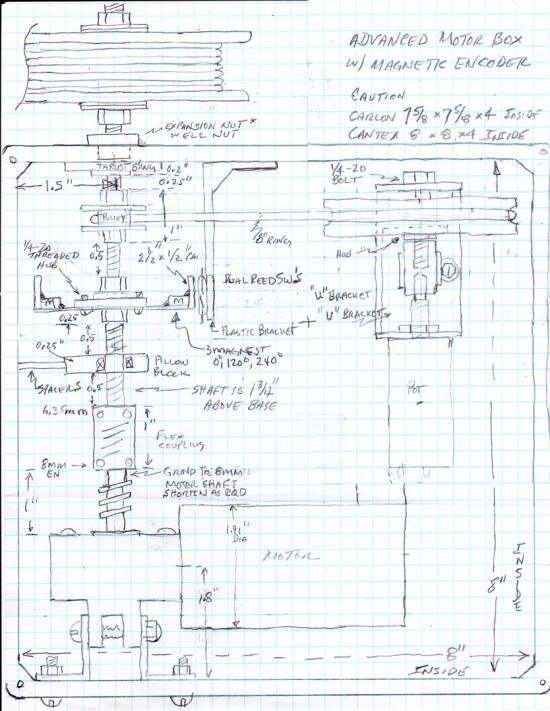 ADVANCED MOTOR BOX
W/ MAGNETIC ENCODER
CAUTION
CARLON 7 5/8 x 7 5/8 x 4 INSIDE
CANTEX 8 x 8 x4 INSIDE
EXPANSION NUT *
WELL NUT
THRUST BRNG
0.2"
0.25"
1/4-20
BOLT
1.5"
PULLEY
1"
1/8" RING
0.5
2 1/2 x 1/2" CH
HUB
1/4-20
THREADED
HUB
DUAL REED SW'S
"U" BRACKET
"U" BRACKET
M
M
PLASTIC BRACKET
0.25
3 MAGNEST
0°, 120°, 240°
0.5
0.25"
PILLOW
BLOCK
POT
SPACERS
0.5
SHAFT IS 1 3/4"
ABOVE BASE
6.35mm
1"
FLEX
COUPLING
8mm
EN
GRIND TO 8mm
MOTOR SHAFT
SHORTEN AS RQD
1"
1.91"
DIA
MOTOR
INSIDE
8"
1.8"
8"
INSIDE